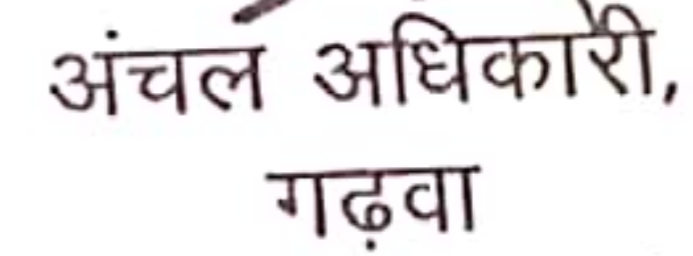 अंचल अधिकारी,
गढ़वा